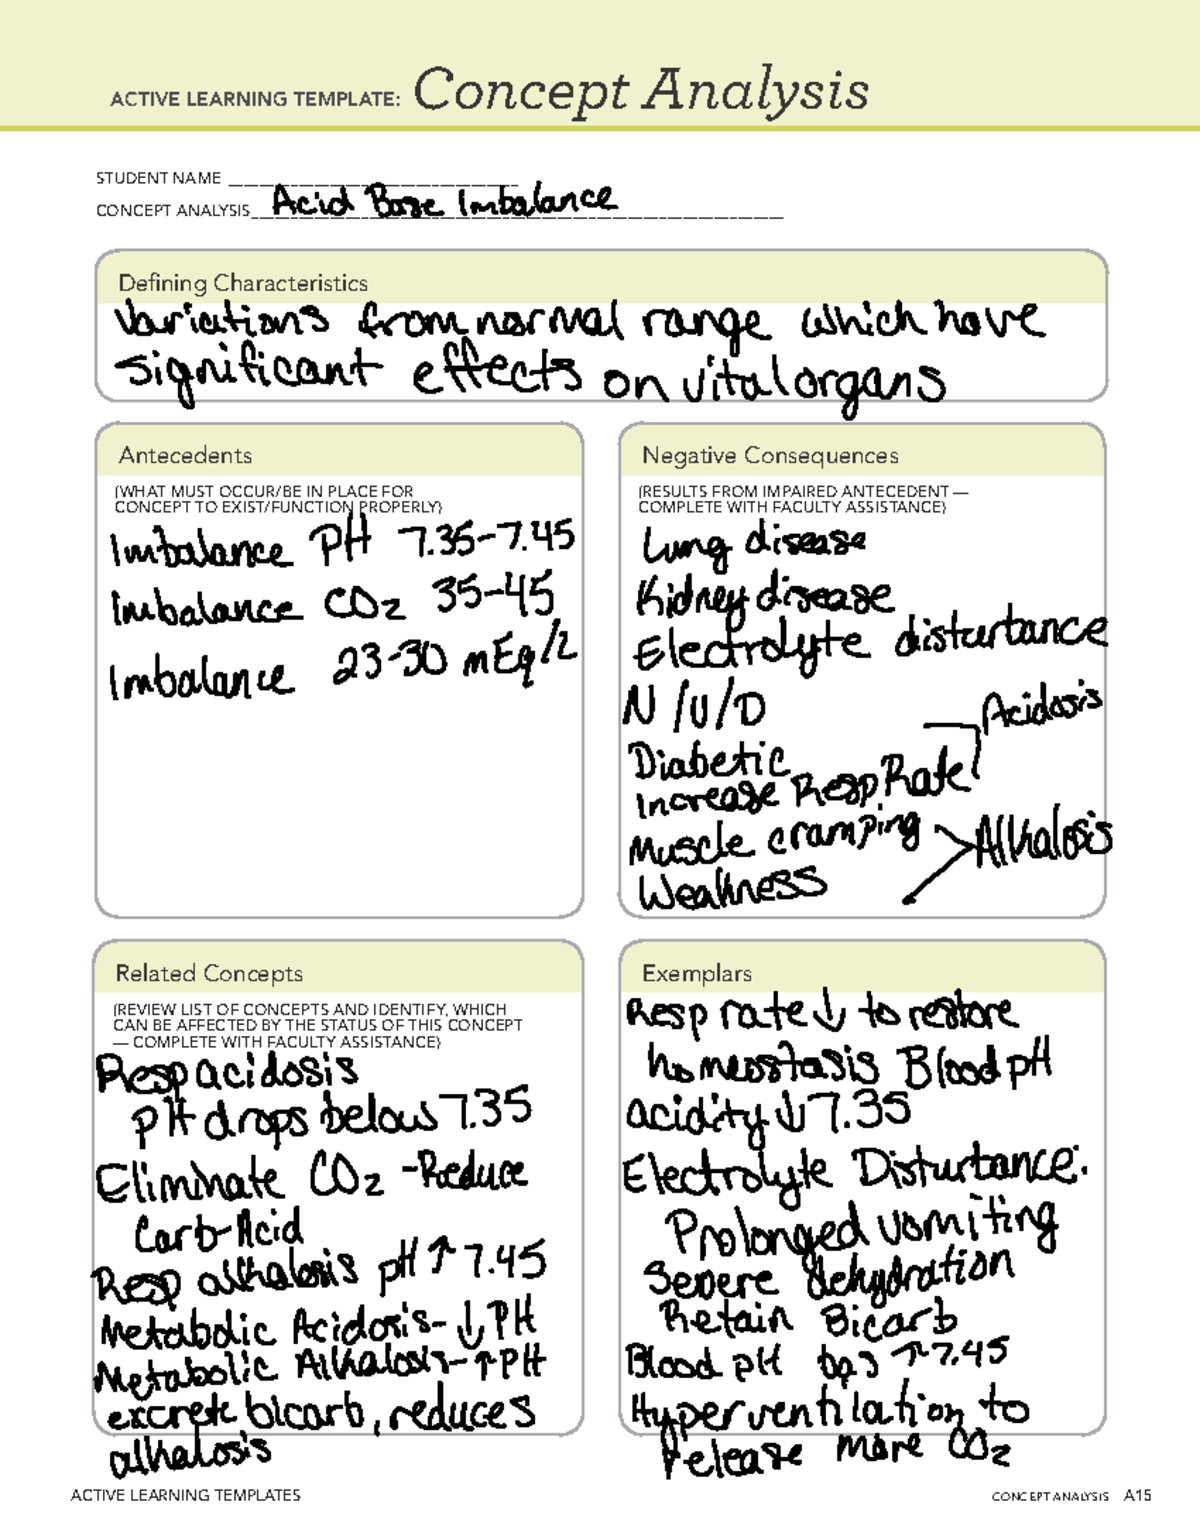 ACTIVE LEARNING TEMPLATE: Concept Analysis
STUDENT NAME
CONCEPT ANALYSIS Acid Base Imbalance
Defining Characteristics
Variations from normal range which have
significant effects on vital organs
Antecedents
(WHAT MUST OCCUR/BE IN PLACE FOR
CONCEPT TO EXIST/FUNCTION PROPERLY)
Imbalance PH 7.35-7.45
Imbalance CO2 35-45
Imbalance 23-30 mEq/L
Negative Consequences
(RESULTS FROM IMPAIRED ANTECEDENT —
COMPLETE WITH FACULTY ASSISTANCE)
Lung disease
Kidney disease
Electrolyte disturtance
N/V/D
Acidosis
Diabetic
Increase Resp Rate
Muscle cramping
Alkalosis
Weakness
Related Concepts
(REVIEW LIST OF CONCEPTS AND IDENTIFY, WHICH
CAN BE AFFECTED BY THE STATUS OF THIS CONCEPT
— COMPLETE WITH FACULTY ASSISTANCE)
Resp acidosis
pH drops below 7.35
Eliminate CO2 -Reduce
Carb-Acid
Resp alkalosis pH ↑ 7.45
Metabolic Acidosis- ↓ PH
Metabolic Alkalosis- ↑ PH
excrete bicarb, reduces
alkalosis
Exemplars
Resp rate ↓ to restore
homeostasis Blood pH
acidity ↓ 7.35
Electrolyte Disturtance:
Prolonged vomiting
Severe dehydration
Retain Bicarb
Blood pH ↑ 7.45
Hyperventilation to
release more CO2
ACTIVE LEARNING TEMPLATES
CONCEPT ANALYSIS A15